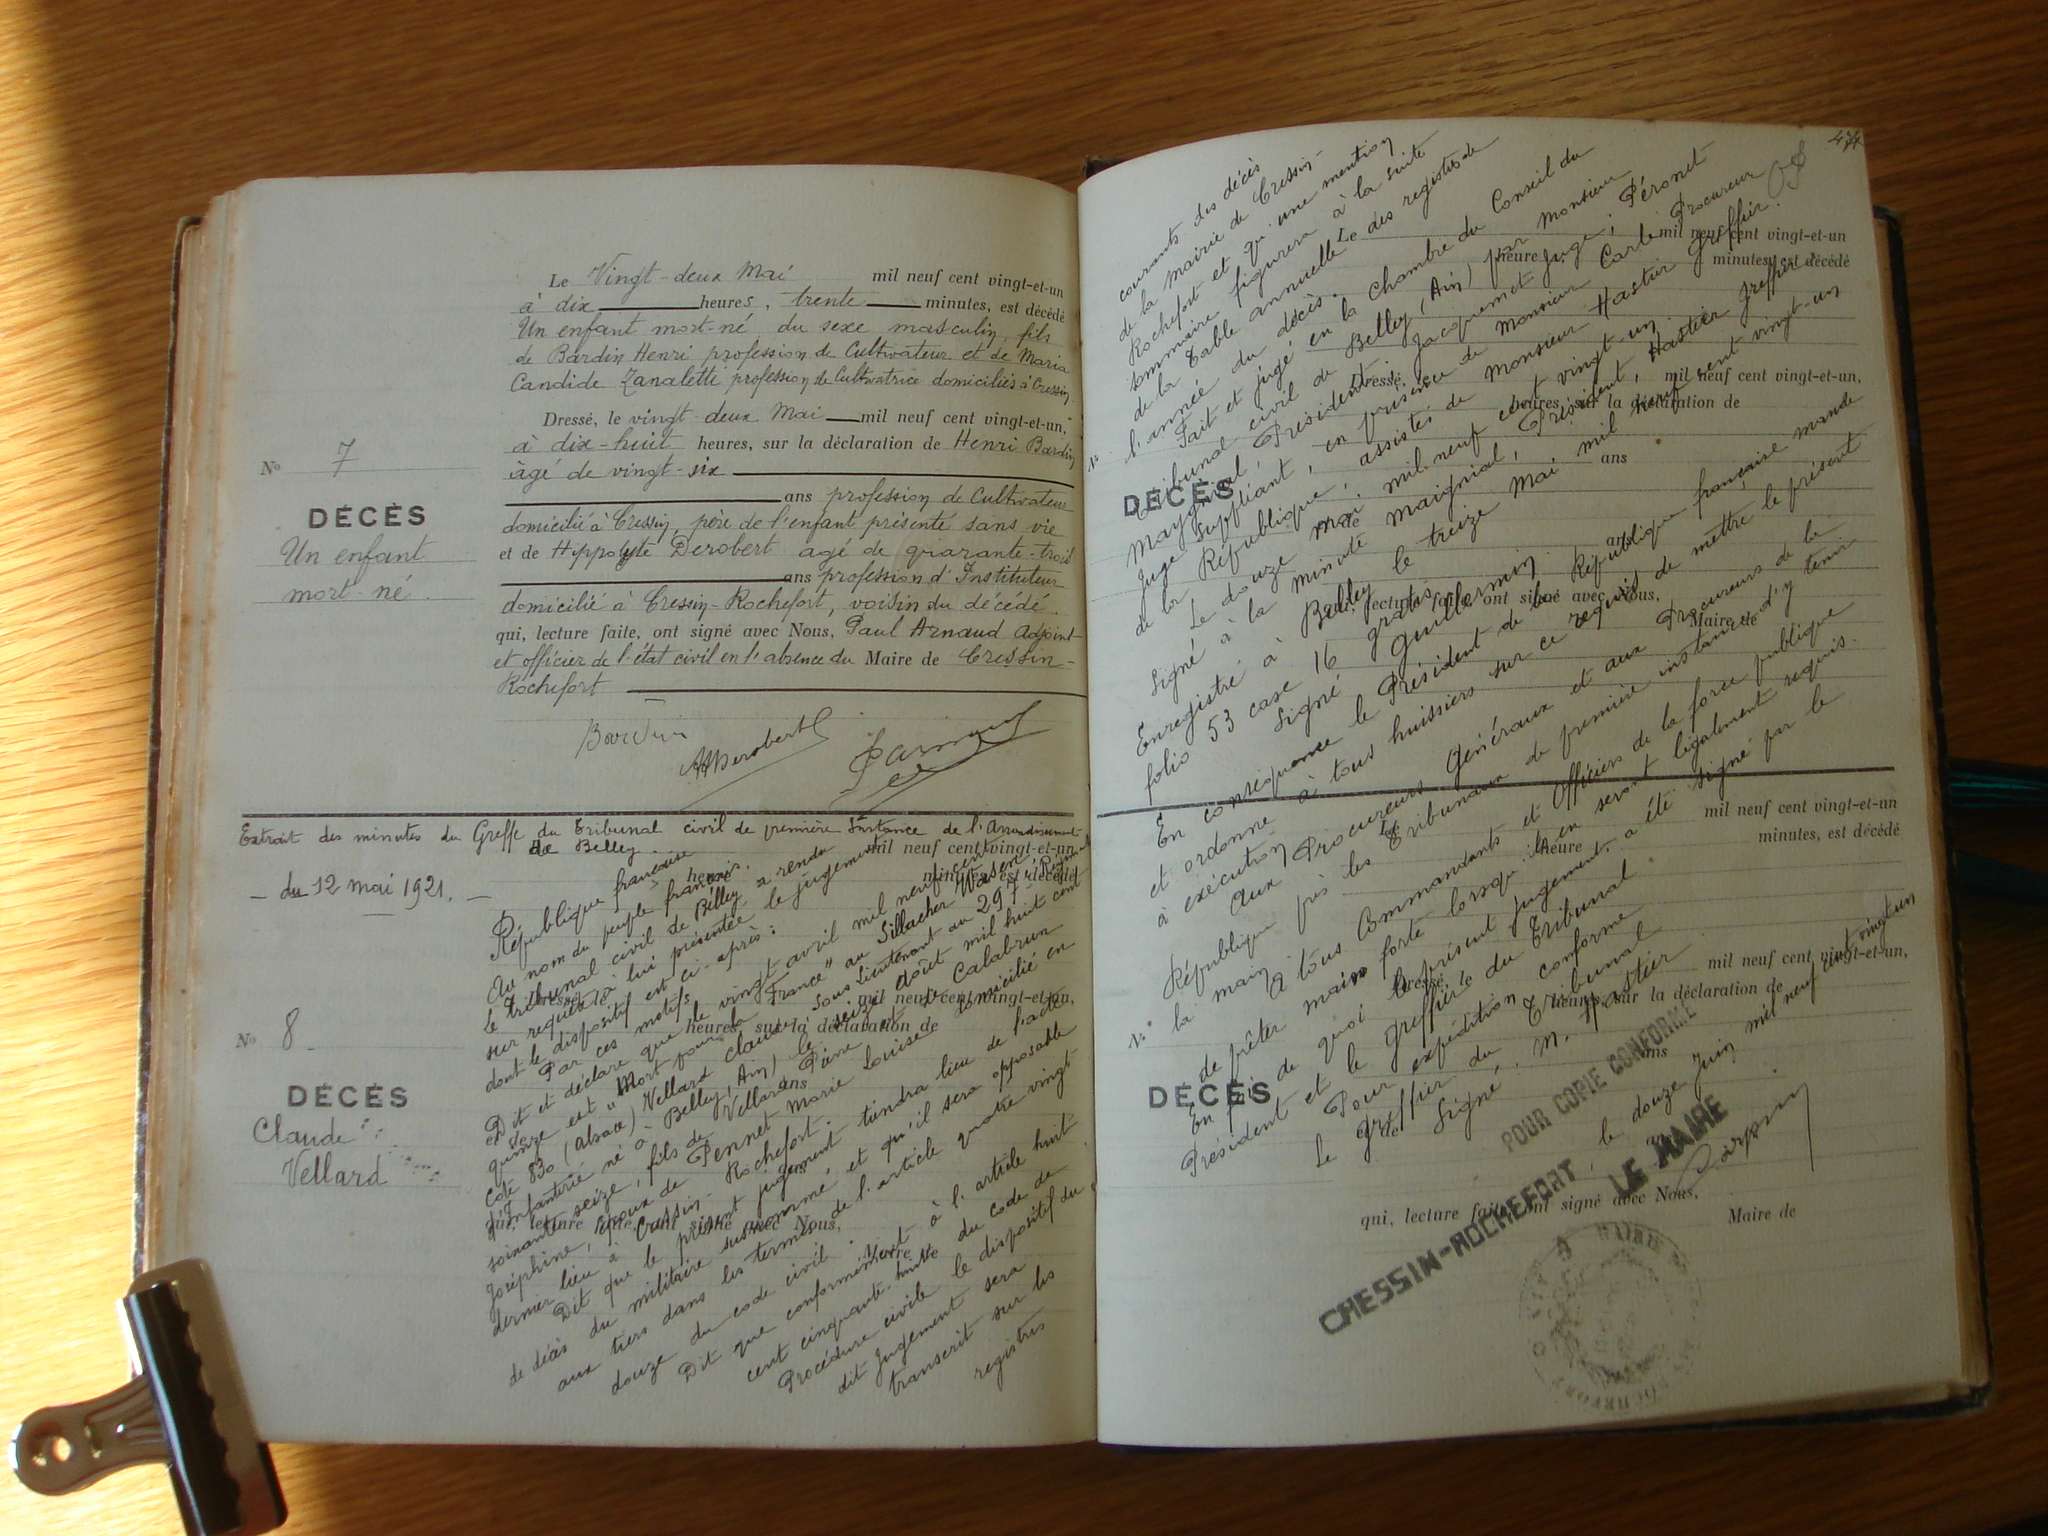 Le Vingt-deux Mai mil neuf cent vingt-et-un
à dix heures, trente minutes, est décédé
Un enfant mort-né du sexe masculin, fils
de Bardin Henri profession de Cultivateur et de Maria
Candide Zanaletti profession de Cultivatrice domiciliés à Cressin
Dressé, le vingt-deux Mai mil neuf cent vingt-et-un,
à dix-huit heures, sur la déclaration de Henri Bardin
âgé de vingt-six
ans profession de Cultivateur
domicilié à Cressin, père de l'enfant présenté sans vie
et de Hippolyte Derobert agé de quarante-trois
ans profession d'Instituteur
domicilié à Cressin-Rochefort, voisin du décédé.
qui, lecture faite, ont signé avec Nous, Paul Arnaud Adjoint
et officier de l'état civil en l'absence du Maire de Cressin-
Rochefort
No 7
DÉCÈS
Un enfant
mort-né.
Bardin
HDerobert
Extrait des minutes du Greffe du Tribunal civil de première Instance de l'Arrondissement
de Belley.
mil neuf cent vingt-et-un
heures minutes, est décédé
- du 12 mai 1921. -
No 8
DÉCÈS
Claude
Vellard
République française
Au nom du peuple français.
Le Tribunal civil de Belley a rendu
sur requête à lui présentée le jugement
dont le dispositif est ci-après:
Par ces motifs
Dit et déclare que le vingt avril mil neuf cent
quinze est "Mort pour la France" au Sillacher Wasen
Cote 830 (Alsace) Vellard Claude Sous Lieutenant au 297e Régiment
d'Infanterie né à Belley (Ain) le seize Août mil huit cent
soixante seize, fils de Vellard Pierre et de Calabrun
Joséphine, époux de Pennet Marie Louise domicilié en
dernier lieu à Cressin-Rochefort.
Dit que le présent jugement tiendra lieu de l'acte
de décès du militaire susnommé et qu'il sera opposable
aux tiers dans les termes de l'article quatre vingt
douze du code civil.
Dit que conformément à l'article huit
cent cinquante-huit du code de
Procédure civile le dispositif du
dit Jugement sera
transcrit sur les
registres
Dressé, le mil neuf cent vingt-et-un,
heures, sur la déclaration de
ans
qui, lecture faite, ont signé avec Nous,
Maire de
courants des décès
de la mairie de Cressin-
Rochefort et qu'une mention
sommaire figurera à la suite
de la Table annuelle des registres de
l'année du décès.
Fait et jugé en la Chambre du Conseil du
Tribunal civil de Belley, (Ain) par Monsieur
Maygnial, Président, Jacquemet Juge, Péronet
Juge Suppléant, en présence de Monsieur Carle Procureur
de la République, assistés de Monsieur Hastier Greffier.
Le douze mai mil neuf cent vingt-un.
Signé à la minute Maignial, Président, Hastier greffier
Enregistré à Belley le treize Mai mil neuf cent vingt-un
folio 53 case 16 gratis.
Signé Guillermin
En conséquence le Président de la République française mande
et ordonne à tous huissiers sur ce requis de mettre le présent
à exécution
Aux Procureurs Généraux et aux Procureurs de la
République près les Tribunaux de première instance d'y tenir
la main.
A tous Commandants et Officiers de la force publique
de prêter main forte lorsqu'ils en seront légalement requis.
En foi de quoi le présent jugement a été signé par le
Président et le Greffier du Tribunal
Pour expédition conforme
Le Greffier du Tribunal
Signé: M. Hastier
Le mil neuf cent vingt-et-un
heure minutes, est décédé
Dressé, le mil neuf cent vingt-et-un,
heures, sur la déclaration de
DÉCÈS
ans
de
ans
qui, lecture faite, ont signé avec Nous,
Maire de
Le mil neuf cent vingt-et-un
heure minutes, est décédé
Dressé, le mil neuf cent vingt-et-un,
heures, sur la déclaration de
No
DÉCÈS
ans
et de
qui, lecture faite, ont signé avec Nous,
Maire de
POUR COPIE CONFORME
CRESSIN-ROCHEFORT, le douze Juin mil neuf cent vingt un
LE MAIRE
MAIRIE